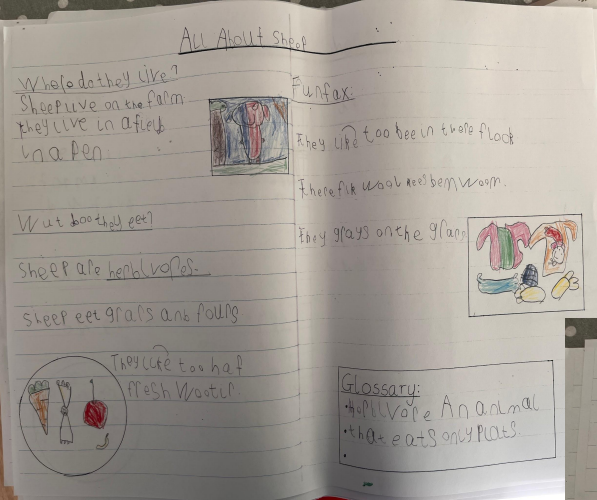 All About Sheep
Where do they live?
Sheep live on the farm
they live in a fleb
in a pen
Wut boo they eet?
Sheep are herbivores.
Sheep eet grars and
They like too haf
fresh Wooter.
Funfax:
they like too bee in there flock
There fik wool kees bem woom.
they grays on the grars
Glossary:
• Herbivore An animal
• that eats only plats.
•